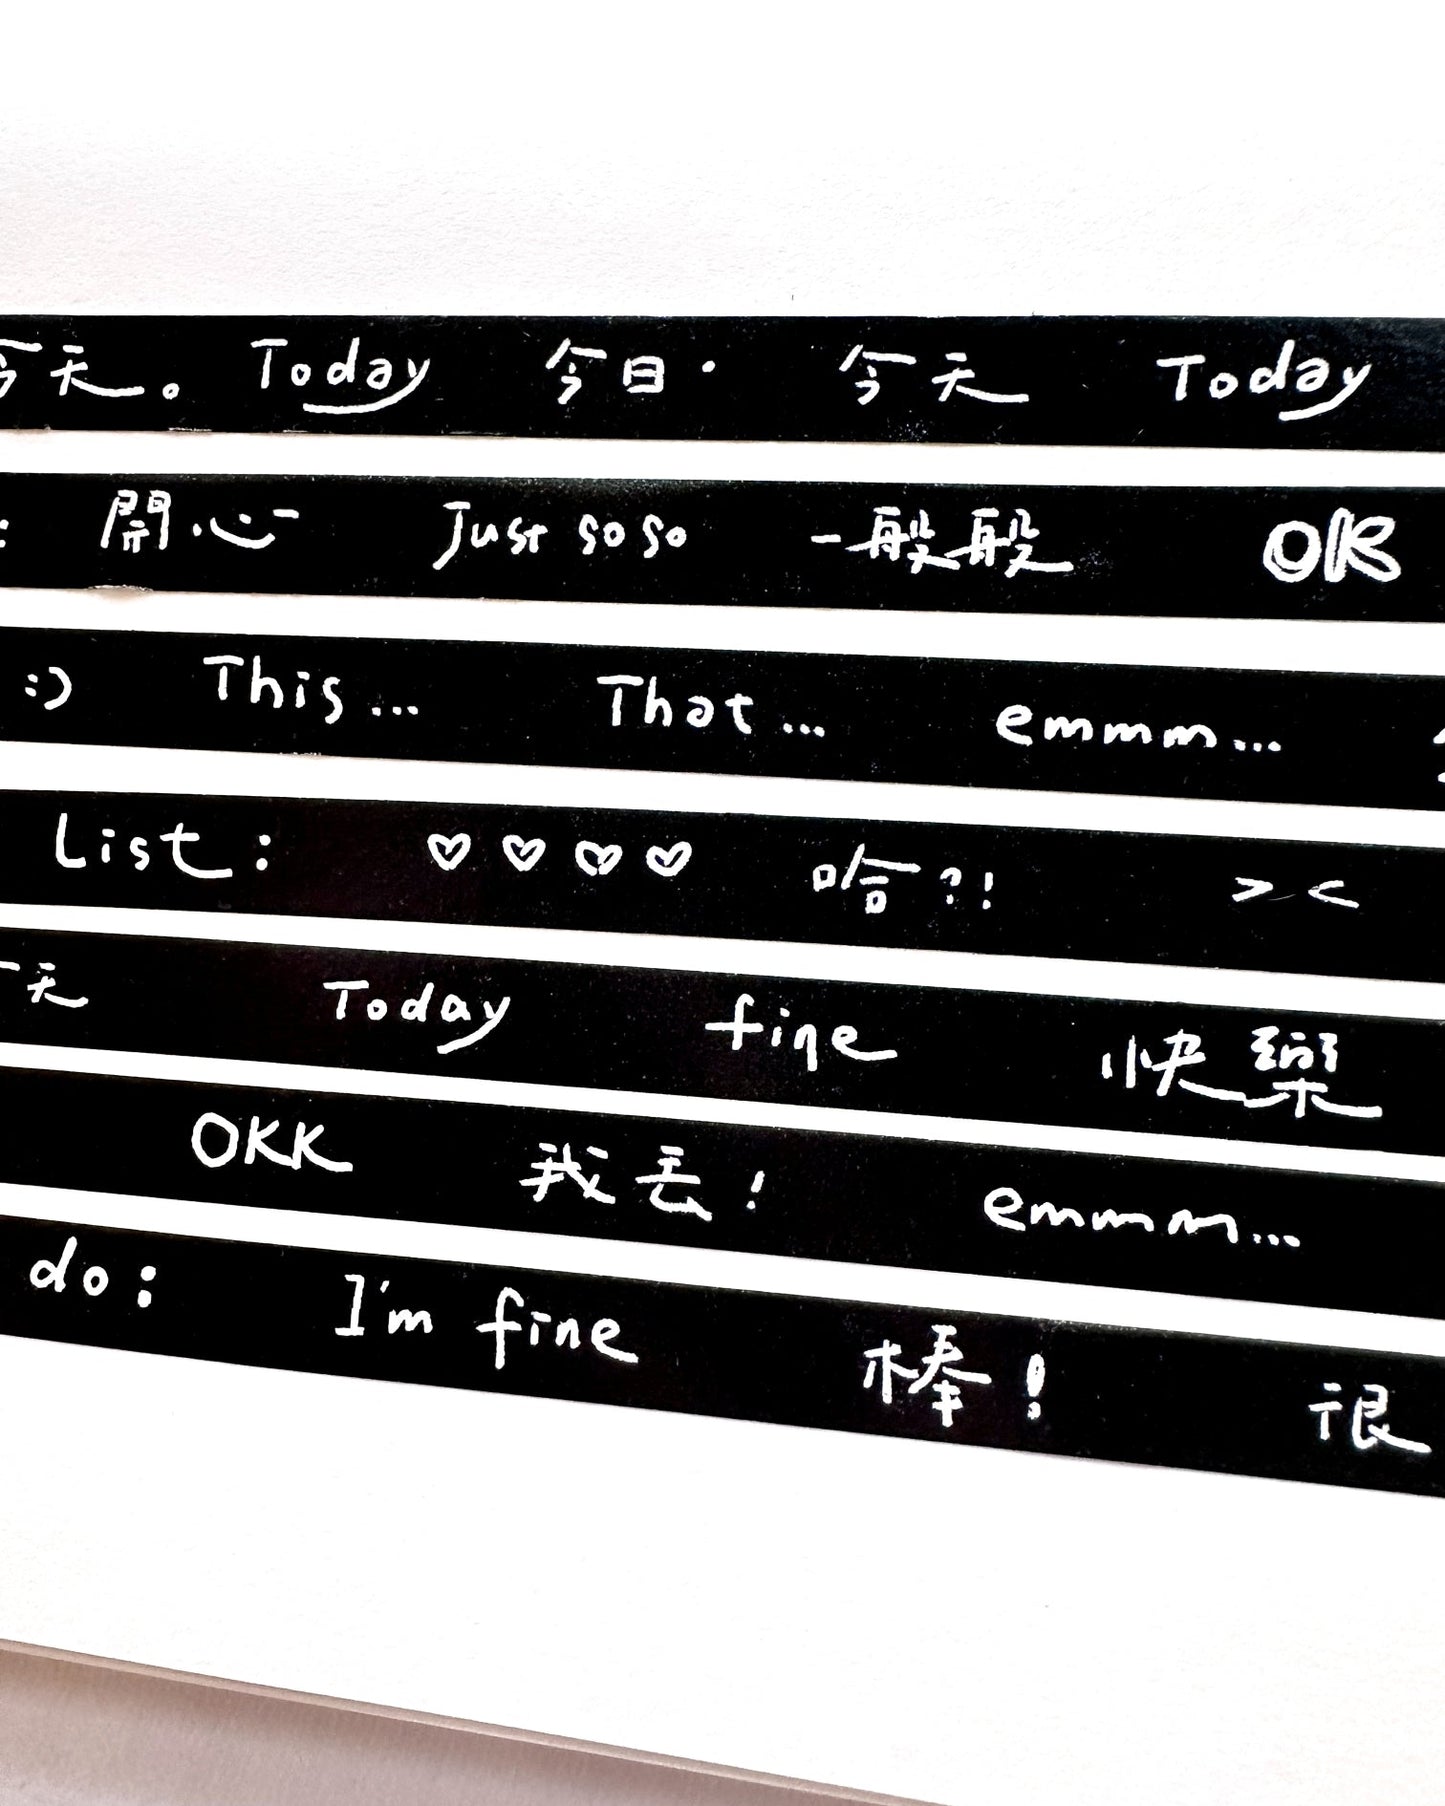 今天。 Today 今日· 今天 Today
: 開心- Just so so 一般般 OK
:) This... That... emmm...
List: ♡♡♡♡ 哈?! ><
今天 Today fine 快樂
OKK 我丟! emmm...
do: I'm fine 棒! 很